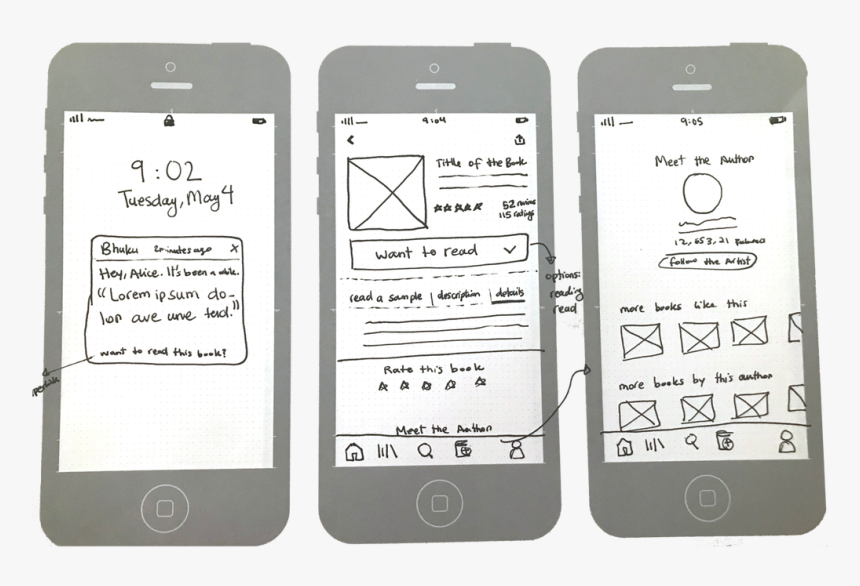 9:02
Tuesday, May 4
Bhuku 2 minutes ago X
Hey, Alice. It's been a while.
"Lorem ipsum do-
lor ave urve terd."
want to read this book?
9:04
Tittle of the Book
52
115 ratings
want to read
options:
reading
read
read a sample | description | details
Rate this book
Meet the Author
9:05
Meet the Author
12,653,21
follow the Artist
more books like this
more books by this author